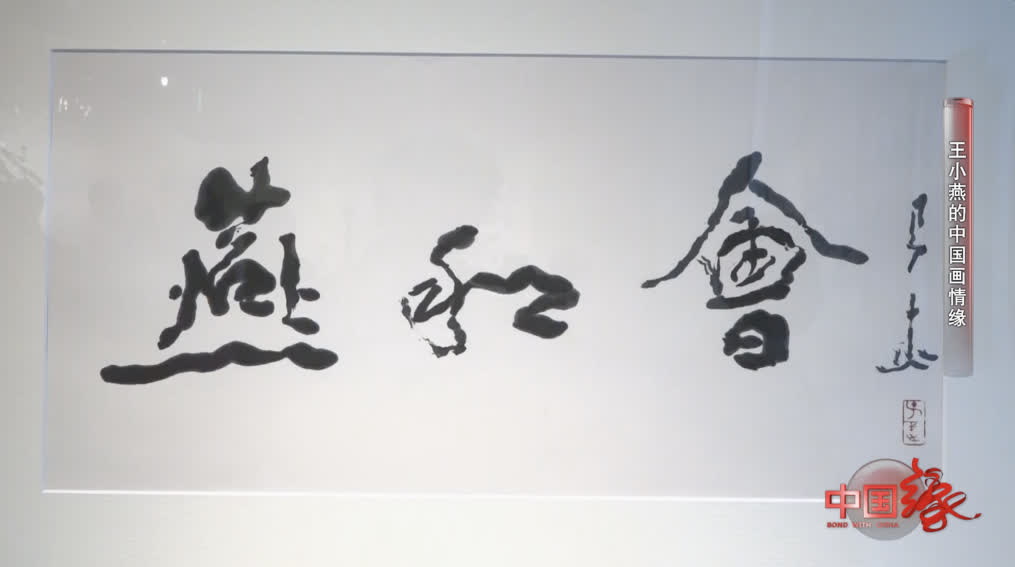 燕和會
王小燕的中国画情缘
中国缘
BOND WITH CHINA